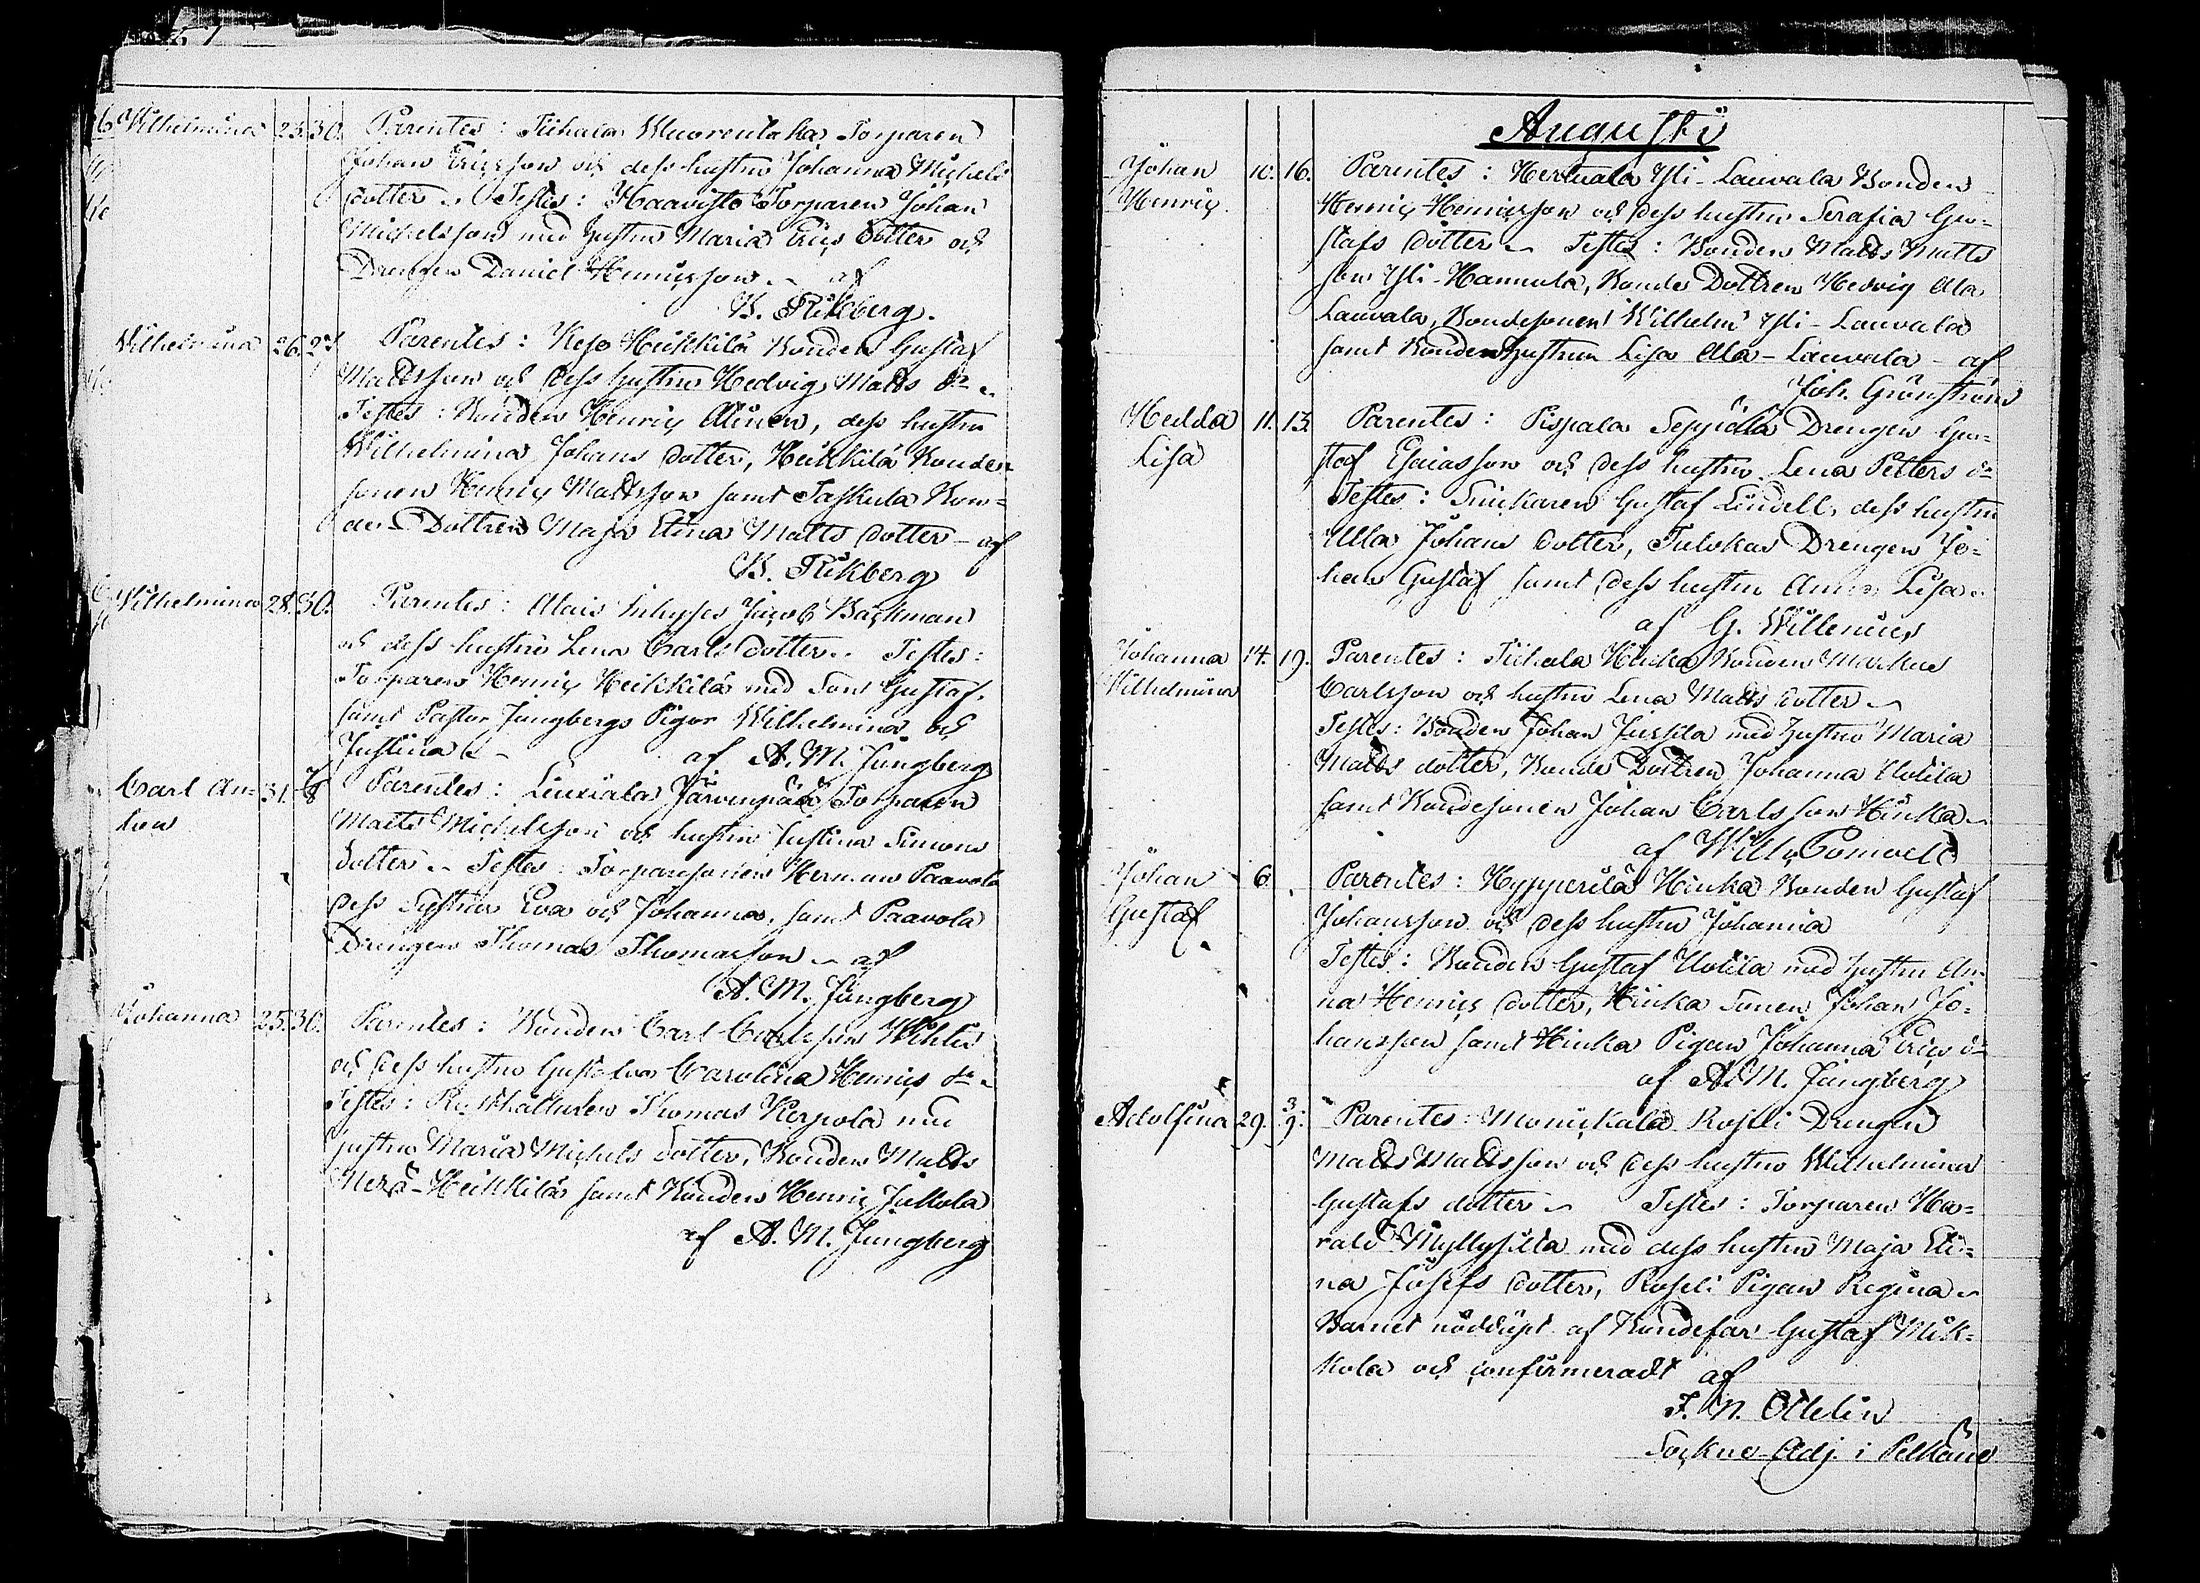 Wilhelmina 25. 30. Parentes: Tiihala Wuorentaka Torparen
Johan Ericsson och dess hustru Johanna Michels
dotter. Testes: Haavisto Torparen Johan
Michelsson med hustru Maria Erics dotter och
Drengen Daniel Henricsson. af
K. Flikberg.
Wilhelmina 26. 27. Parentes: Kejo Heikkilä Bonden Gustaf
Mattsson och dess hustru Hedvig Matts dr.
Testes: Bonden Henric Alinen, dess hustru
Wilhelmina Johans dotter, Heikkilä Bonde
sonen Henric Mattsson samt Taskula Bon=
de Dottren Maja Stina Matts dotter - af
K. Flikberg
Wilhelmina 28. 30. Parentes: Inhyses Jacob Backman
och dess hustru Lena Carls dotter. Testes:
Torparen Henric Heikkilä med Son Gustaf,
samt Pastor Jungbergs Pigor Wilhelmina och
Justina af A. M. Jungberg
Carl An= 31. 7/8 Parentes: Liuxiala Järvenpää Torparen
ton Matts Michelsson och hustru Justina Simons
dotter. Testes: Torparesonen Herman Paavola
dess Systrar Eva och Johanna, samt Paavola
Drengen Thomas Thomasson. af
A. M. Jungberg
Johanna 25. 30. Parentes: Bonden Carl Carlsson
och dess hustru Gustafva Carolina Henrics dr.
Testes: Thomas Kerpola med
hustru Maria Michels dotter, Bonden Matts
Heikkilä samt Bonden Henric Jukola
af A. M. Jungberg
Augusti
Johan 10. 16. Parentes: Hertuala Yli-Lauvala Bonden
Henric Henric Henricsson och dess hustru Serafia Gu=
stafs dotter. Testes: Bonden Matts Matts
son Yli-Hannula, Bonde Dottren Hedvig Ala
Lauvala, Bondesonen Wilhelm Yli-Lauvala
samt Bonden Hustrun Lisa Ala-Lauvala - af
Joh. Grönström
Hedda 11. 13. Parentes: Pispala Seppälä Drengen Gu=
Lisa staf Esaiasson och dess hustru Lena Petters dr
Testes: Snickaren Gustaf Lindell, dess hustru
Ulla Johans dotter, Drengen Jo=
han Gustaf samt dess hustru Anna Lisa.
af G. Willenius
Johanna 14. 19. Parentes: Tiihala Hinka Bonden Markus
Wilhelmina Carlsson och hustru Lena Matts dotter.
Testes: Bonden Johan Juskla med hustru Maria
Matts dotter, Bonde Dottren Johanna Uotila
samt Bondesonen Johan Carlsson Hinka.
af Wilh.
Johan 6. Parentes: Hyppärilä Hinka Bonden Gustaf
Gustaf Johansson och dess hustru Johanna
Testes: Bonden Gustaf Uotila med hustru An=
na Henrics dotter, Hinka Sonen Johan Jo=
hansson samt Hinka Pigan Johanna Erics dr
af A. M. Jungberg
Adolfina 29. 3/9. Parentes: Monickala Roseli Drengen
Matts Mattsson och dess hustru Wilhelmina
Gustafs dotter. Testes: Torparen Ha=
rald Myllysilta med dess hustru Maja Sti=
na Josefs dotter, Roseli Pigan Regina.
Barnet nöddöpt af Bondefar Gustaf Mik=
kola och confirmeradt af
F. N. Odelin
Sockne Adj. i Pelkäne